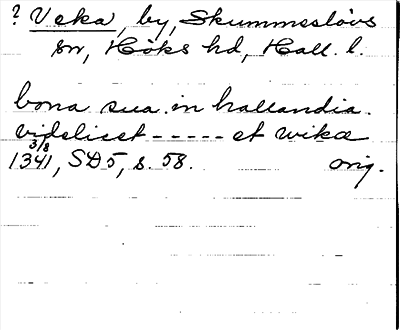 ? Veka, by, Skummeslövs
sn, Höks hd, Hall. l.
bona sua in hallandia
videlicet ----- et wikæ
1341 3/8, SD5, s. 58. orig.